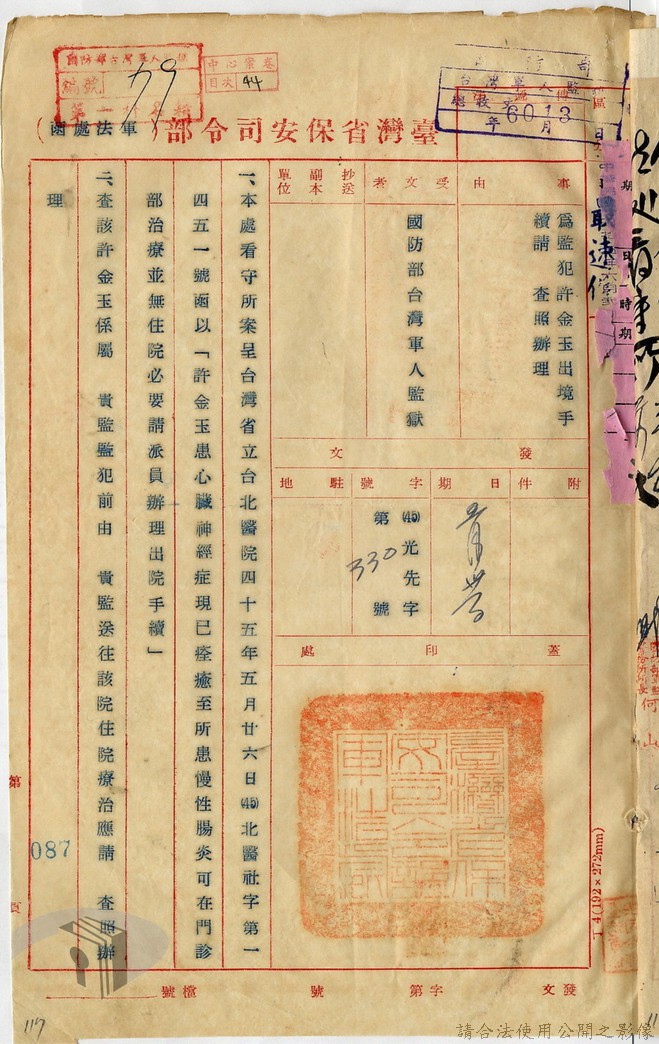 臺灣省保安司令部(軍法處函)
事由
為監犯許金玉出境手
續請 查照辦理
受文者
國防部台灣軍人監獄
抄送
副本
單位
發文
附件
日期
字號
駐地
(45)光先字
第330號
蓋印處
一、本處看守所案呈台灣省立台北醫院四十五年五月廿六日(45)北醫社字第一
四五一號函以「許金玉患心臟神經症現已痊癒至所患慢性腸炎可在門診
部治療並無住院必要請派員辦理出院手續」
二、查該許金玉係屬 貴監監犯前由 貴監送往該院住院療治應請 查照辦
理
最速件
中心案卷
目次 44
編號
79
台灣軍人監
6013
年 月
第 頁
087
發文 字第 號 檔號
T 4(192×272mm)
117
請合法使用公開之影像